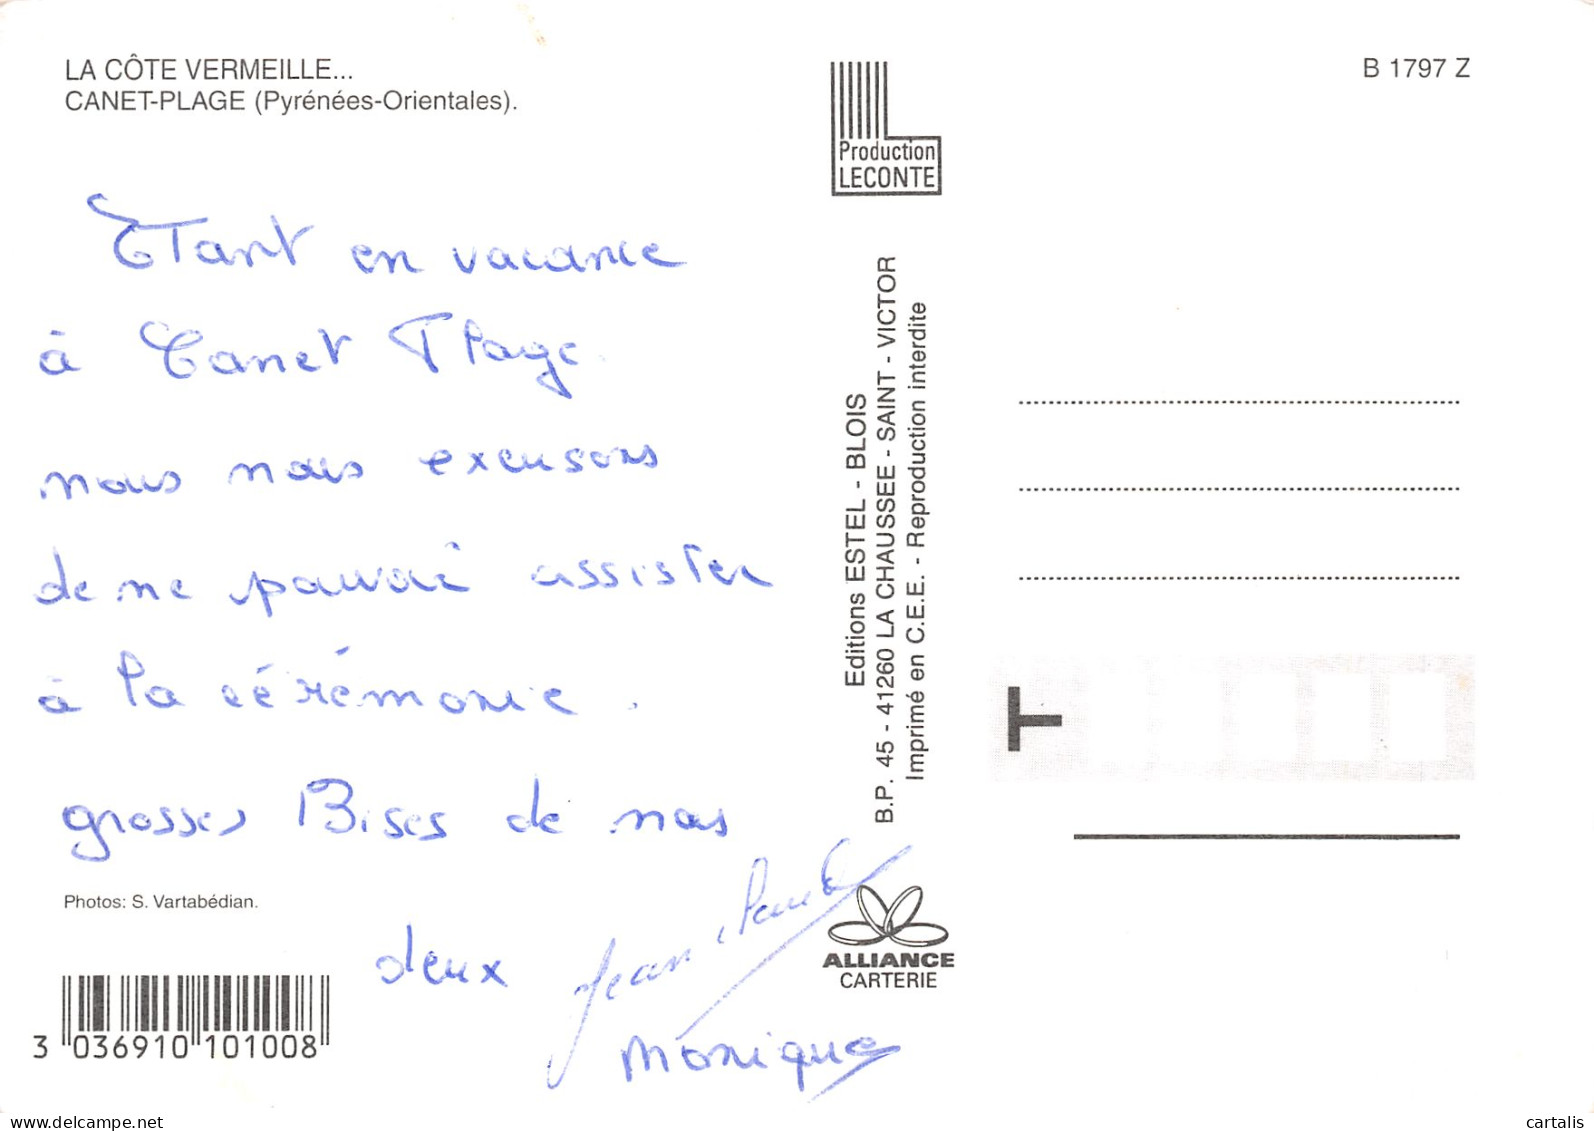 LA CÔTE VERMEILLE...
CANET-PLAGE (Pyrénées-Orientales).
B 1797 Z
Production
LECONTE
Etant en vacance
à Canet Plage
nous nous excusons
de ne pouvoir assister
à la cérémonie.
grosses Bises de nos
deux Jean
Monique
Editions ESTEL - BLOIS
B.P. 45 - 41260 LA CHAUSSEE - SAINT - VICTOR
Imprimé en C.E.E. - Reproduction interdite
T
Photos: S. Vartabédian.
ALLIANCE
CARTERIE
3 036910 101008
delcampe.net
cartalis